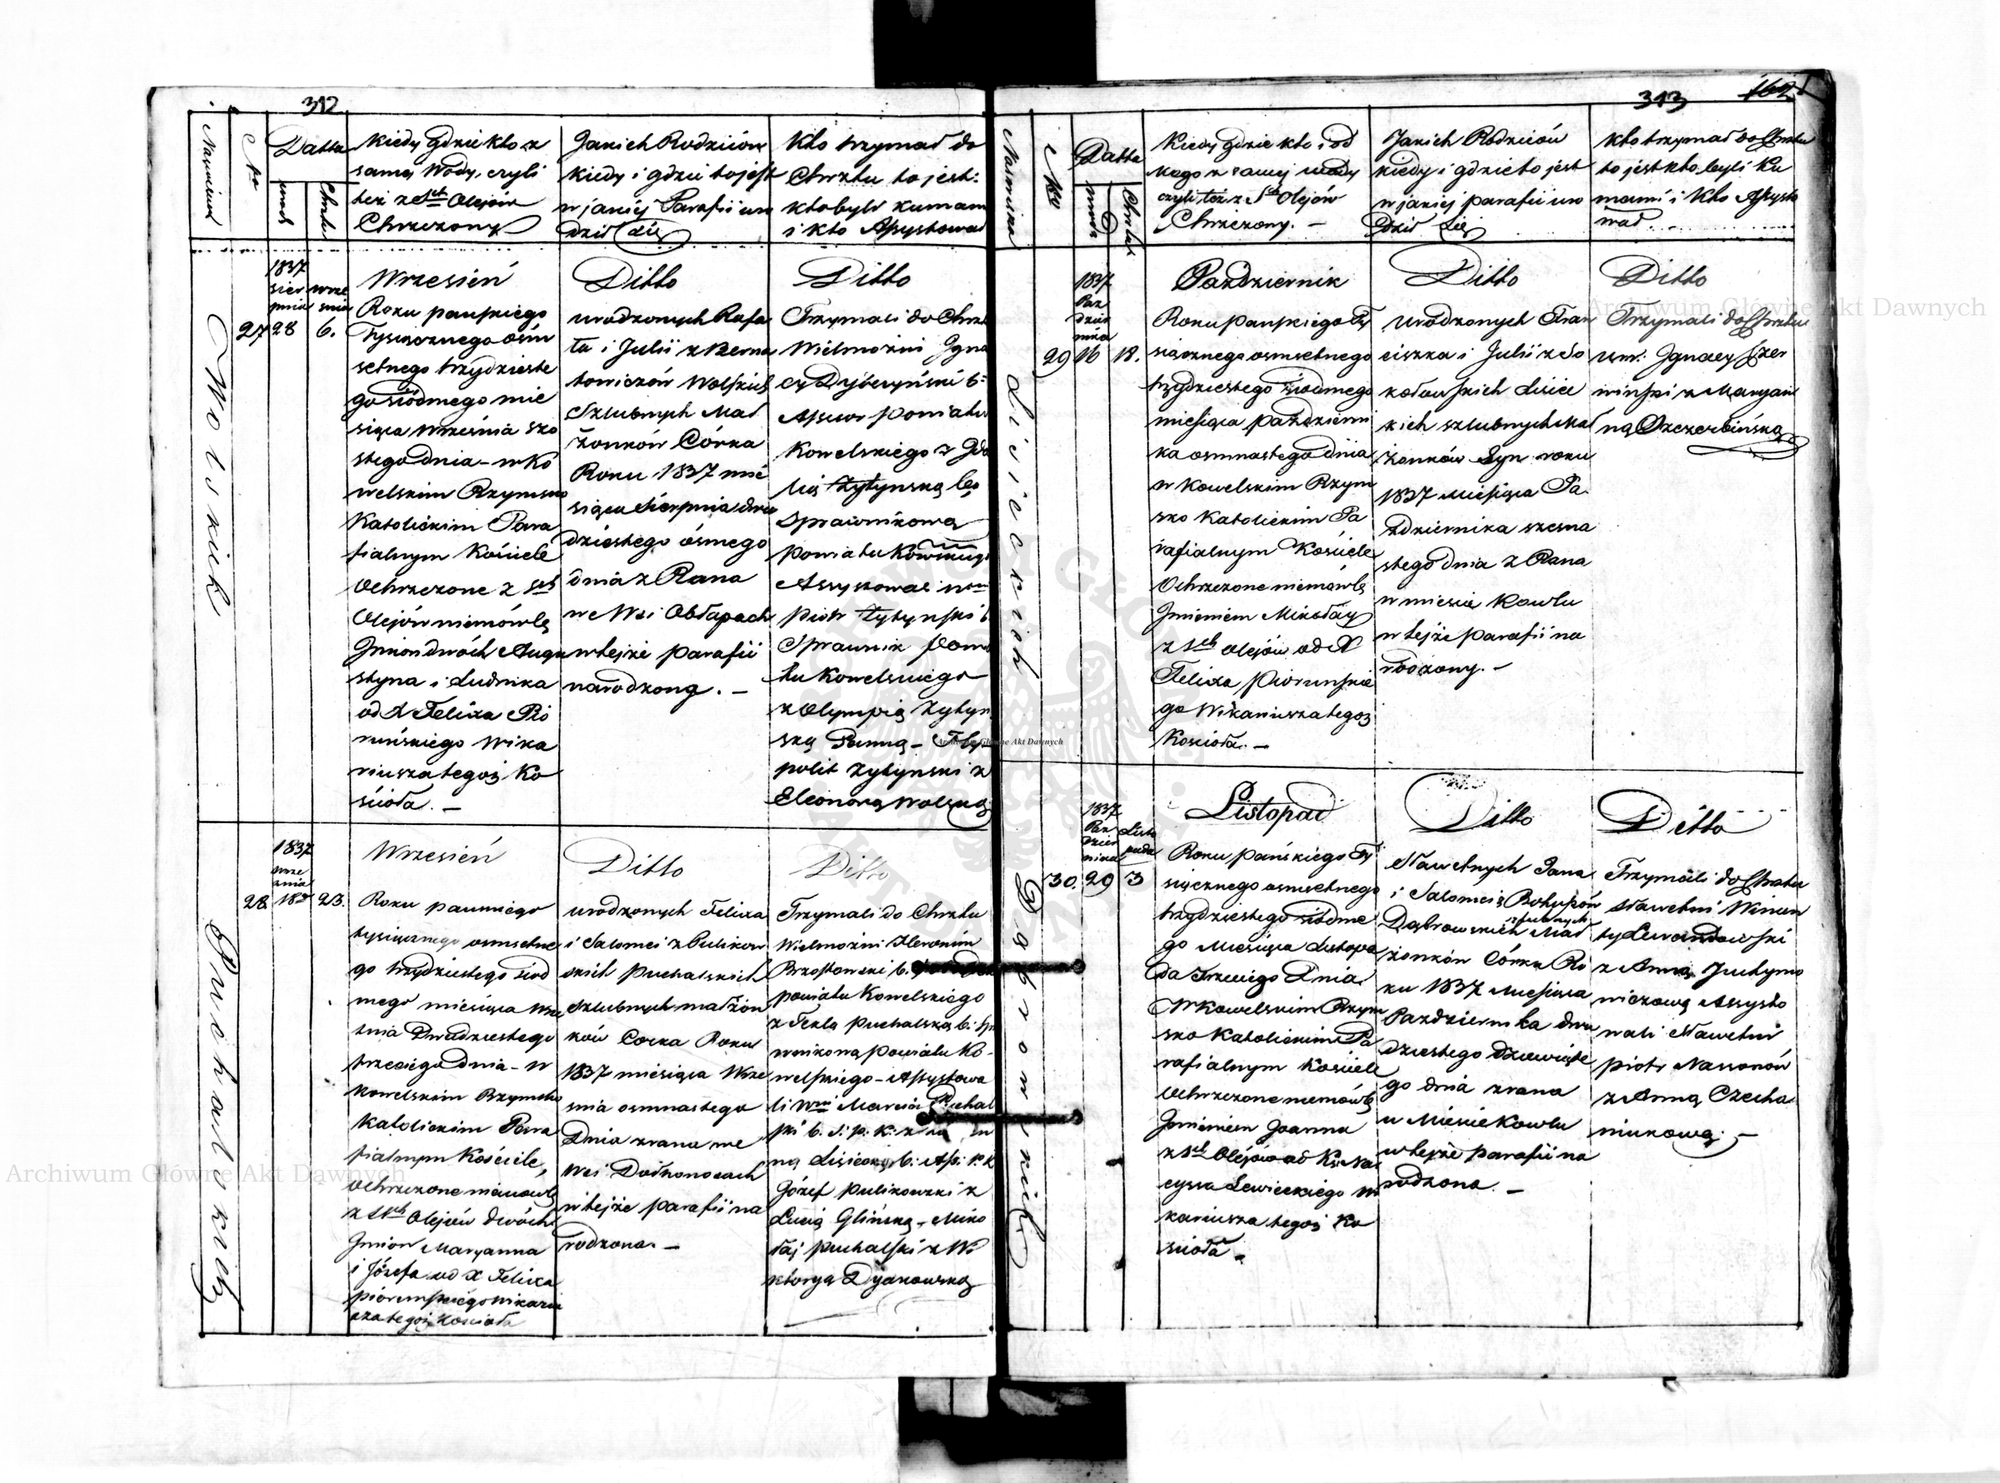 312
Nazwisko
No
Datta
urodz
Chrztu
Kiedy gdzie kto z
samej Wody, czyli
też z Sch Olejów
Chrzczony
Jakich Rodziców
kiedy i gdzie to jest
w jakiej Parafii uro
dził się
Kto trzymał do
Chrztu to jest:
kto byli kumam
i kto Assystował
Wolskich
27
1837
sier
pnia
28
wrze
snia
6.
Wrzesień
Roku pańskiego
Tysiącznego óśm
setnego trzydzieste
go siódmego mie
siąca Września szo
stego dnia – w Ko
welskim Rzymsko
Katolickim Para
fialnym Kościele
Ochrzczone z Sch
Olejów niemówlę
Jmion dwóch Augu
styna i Ludwika
od X Felixa Pio
ruńskiego Wika
riusza tegoż Ko
ścioła. –
Ditto
urodzonych Rafa
ła i Julii z Berna
towiczów Wolskich
Szlubnych Mał
żonków Córka
Roku 1837 mie
siąca Sierpnia dwu
dziestego ósmego
dnia z Rana
we Wsi Obłapach
w tejże parafii
narodzona. –
Ditto
Trzymali do Chrz
Wielmożni Jgna
cy Dyberyński b:
Assesor powiatu
Kowelskiego z Jda
lią Żytyńską
Sprawnikową
powiatu
Assystował
Piotr Żytyński b
Sprawnik Powia
tu Kowelskiego
z Olympią Żytyń
ską Panną –
polit Żytyński z
Eleonorą Wolską
Puchalskich
28
1837
wrze
snia
18
23.
Wrzesień
Roku
tysiącznego osmsetne
go trzydziestego siod
mego miesiąca Wrze
śnia Dwudziestego
trzeciego dnia – w
Kowelskim Rzymsko
Katolickim Para
fialnym Kościele,
Ochrzczone niemówlę
z Sch Olejów dwóch
Jmion Maryanna
i Józefa od X Felixa
Pioruńskiego wikariu
sza tegoż Kościoła
Ditto
urodzonych Felixa
i Salomei z Pulikow
skich Puchalskich
Szlubnych małżon
ków Corka Roku
1837 miesiąca Wrze
śnia osmnastego
Dnia zrana we
Wsi Dołhonosach
w tejże parafii na
rodzona. –
Ditto
Trzymali do Chrztu
Wielmożni Hieronim
Brzostowski b.
powiatu Kowelskiego
z Teklą Puchalską b:
wnikową powiatu Ko-
welskiego – Assystowa
li Wni Marcin Puchal
ski b. S. p. K. z
ną Lisiecką b: As: P. K
Józef Pulikowski z
Lucią Glińską – Miko
łaj Puchalski z Wi
ktoryą Dyakowską
313
162
Nazwisko
No
Datta
urodz
Chrztu
Kiedy gdzie kto i od
Kogo z samej wody
czyli też z Sch Olejów
Chrzczony. –
Jakich Rodziców
kiedy i gdzie to jest
w jakiej parafii uro
dził się
Kto trzymał do Chrztu
to jest kto byli Ku
mami i Kto Assysto
wał.
Lisieckich
29
1837
Paź
dzier
nika
16
18.
Październik
Roku pańskiego Ty
siącznego osmsetnego
trzydziestego siodmego
miesiąca październi
ka osmnastego dnia
w Kowelskim Rzym
sko Katolickim Pa
rafialnym Kościele
Ochrzczone niemówlę
Jmieniem Mikołay
z Sch Olejów od X
Felixa Pioruńskie
go Wikariusza tegoż
Kościoła. –
Ditto
Urodzonych Fran
ciszka i Julii z So
kołowskich Lisiec
kich szlubnych Mał
żonków Syn roku
1837 Miesiąca Pa
ździernika szesna
stego dnia z Rana
w miesie Kowlu
w tejże parafii na
rodzony. –
Ditto
Trzymali do Chrztu
Jgnacy Szczer
biński z Maryan
ną Szczerbińską
Dąbrowskich
30.
1837
Paz
dzier
nika
29
Listo
pada
3
Listopad
Roku pańskiego Ty
siącznego osmsetnego
trzydziestego siodme
go Miesiąca Listopa
da Trzeciego Dnia
W Kowelskim Rzym
sko Katolickim Pa
rafialnym Kościele
Ochrzczone niemówlę
Jmieniem Joanna
z Sch Olejów od X
Lewickiego Wi
kariusza tegoż Ko
ścioła –
Ditto
Sławetnych Jana
i Salomei z
Dąbrowskich szlubnych Mał
żonków Córka Ro
ku 1837 Miesiąca
Października dwu
dziestego dziewiąte
go dnia zrana
w Miesie Kowlu
w tejże parafii na
rodzona. –
Ditto
Trzymali do Chrztu
Sławetni Wincen
ty Lewandowski
z Anną Juchymo
wiczową Assysto
wali Sławetni
Piotr
z Anną Czecha
niukową. –
Archiwum Główne Akt Dawnych
Archiwum Główne Akt Dawnych
Archiwum Główne Akt Dawnych